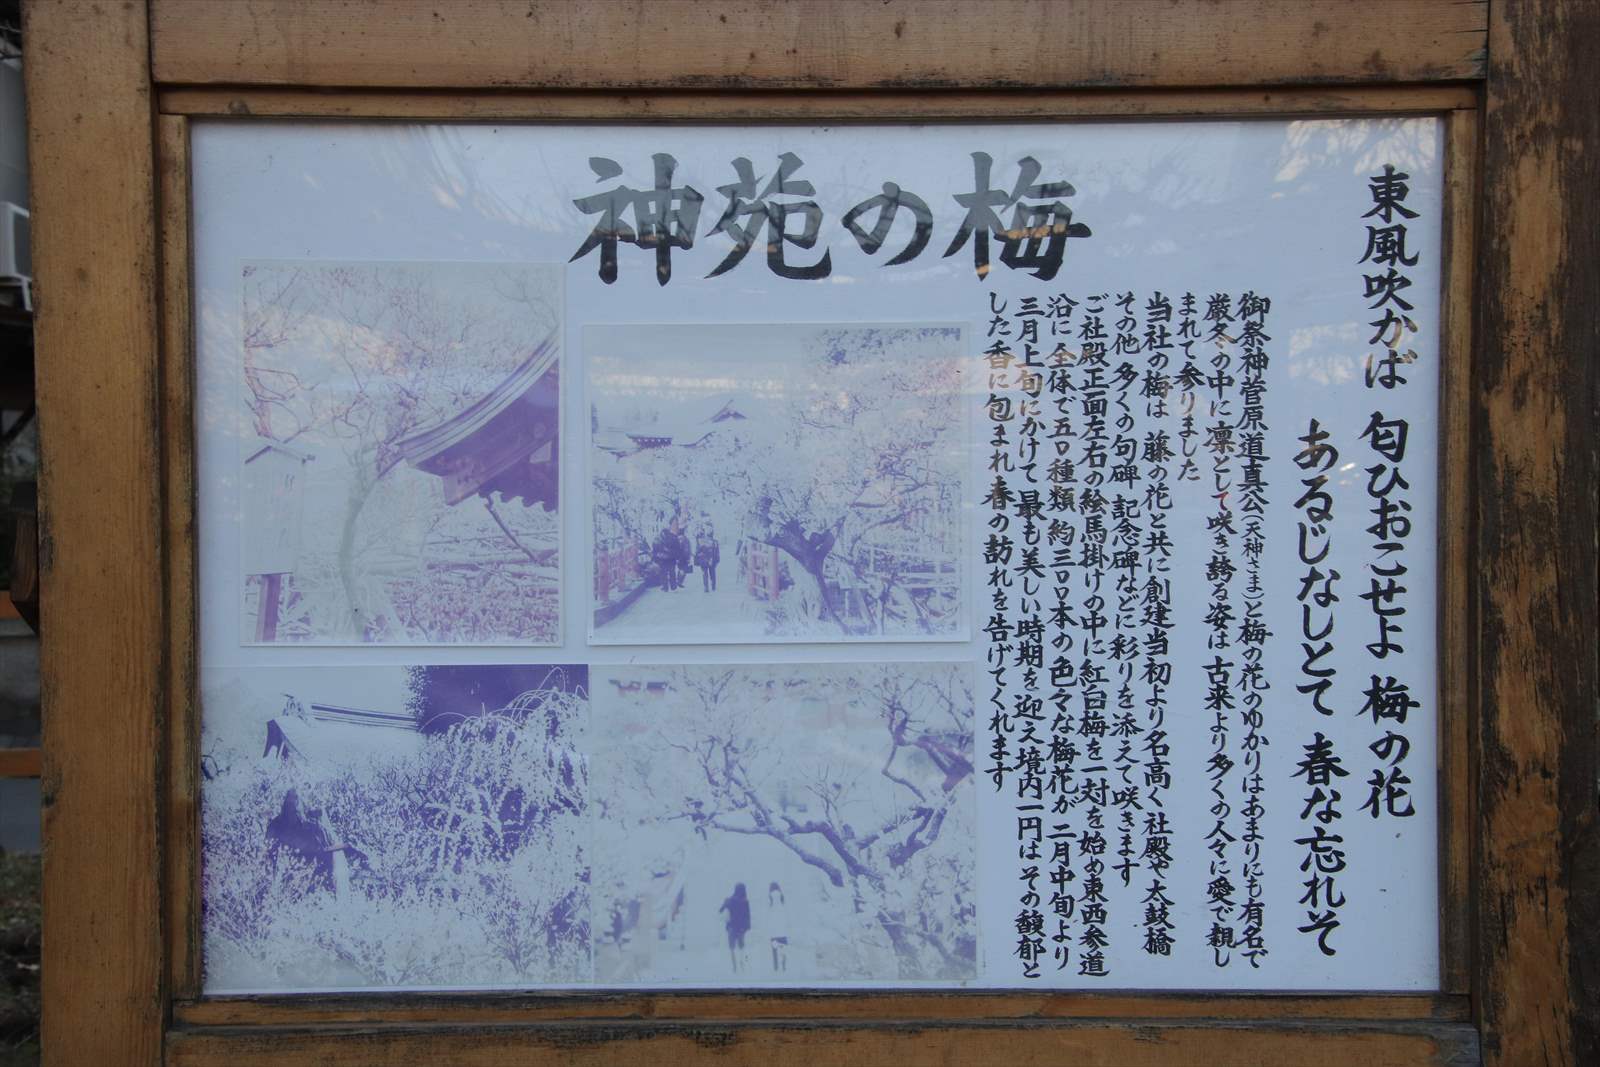 神苑の梅
東風吹かば 匂ひおこせよ 梅の花
あるじなしとて 春な忘れそ
御祭神菅原道真公(天神さま)と梅の花のゆかりはあまりにも有名で
厳冬の中に凛として咲き誇る姿は 古来より多くの人々に愛で親し
まれて参りました
当社の梅は 藤の花と共に創建当初より名高く社殿や太鼓橋
その他 多くの句碑 記念碑などに彩りを添えて咲きます
ご社殿正面左右の絵馬掛けの中に紅白梅を一対を始め東西参道
沿に 全体で五〇種類 約三〇〇本の色々な梅花が 二月中旬より
三月上旬にかけて 最も美しい時期を迎え境内一円はその馥郁と
した香に包まれ春の訪れを告げてくれます